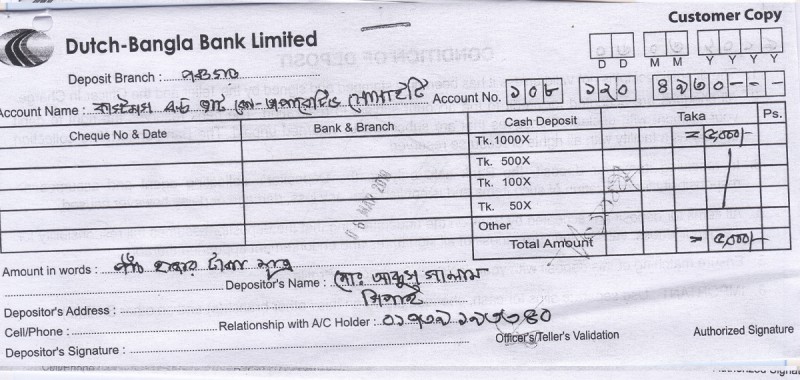 Customer Copy
Dutch-Bangla Bank Limited
D D M M Y Y Y Y
Deposit Branch :
Account Name : কাস্টমস এন্ড ভ্যাট কো-অপারেটিভ সোসাইটি Account No. ১০৮ ১২০ ৪১৬০---
Cheque No & Date Bank & Branch Cash Deposit Taka Ps.
Tk. 1000X = ৫,০০০/-
Tk. 500X
Tk. 100X
Tk. 50X
Other
Total Amount = ৫,০০০/-
Amount in words : পাঁচ হাজার টাকা মাত্র
Depositor's Name : মোঃ আব্দুস সালাম
Depositor's Address : সিপাই
Cell/Phone : Relationship with A/C Holder :
Depositor's Signature : Officer's/Teller's Validation Authorized Signature